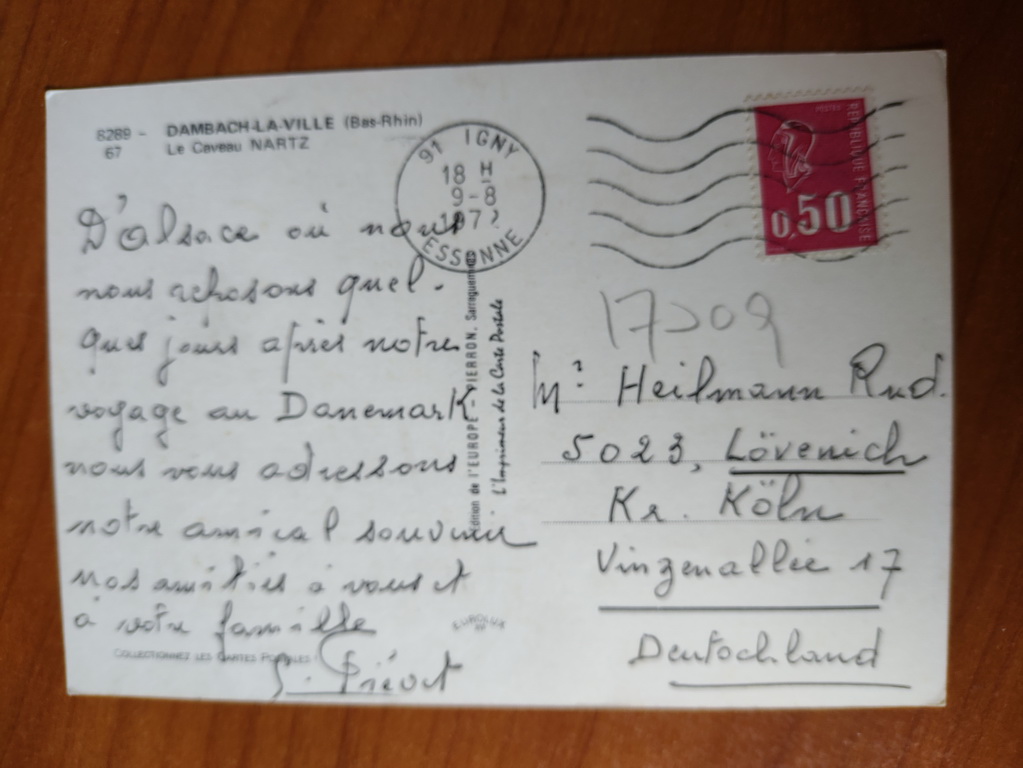 8289 - DAMBACH-LA-VILLE (Bas-Rhin)
67 Le Caveau NARTZ
91 IGNY
18 H
9-8
197
ESSONNE
POSTES
REPUBLIQUE FRANÇAISE
0,50
D'alsace où nous
nous reposons quel-
ques jours après notre
voyage au Danemark
nous vous adressons
notre amical souvenir.
nos amitiés à vous et
à votre famille
Prévot
Edition de l'EUROPE - PIERRON, Sarreguemines
L'Imprimeur de la Carte Postale
EUROLUX
COLLECTIONNEZ LES CARTES POSTALES !
Mr Heilmann Rud.
5023, Lövenich
Kr. Köln
Vinzenallée 17
Deutschland